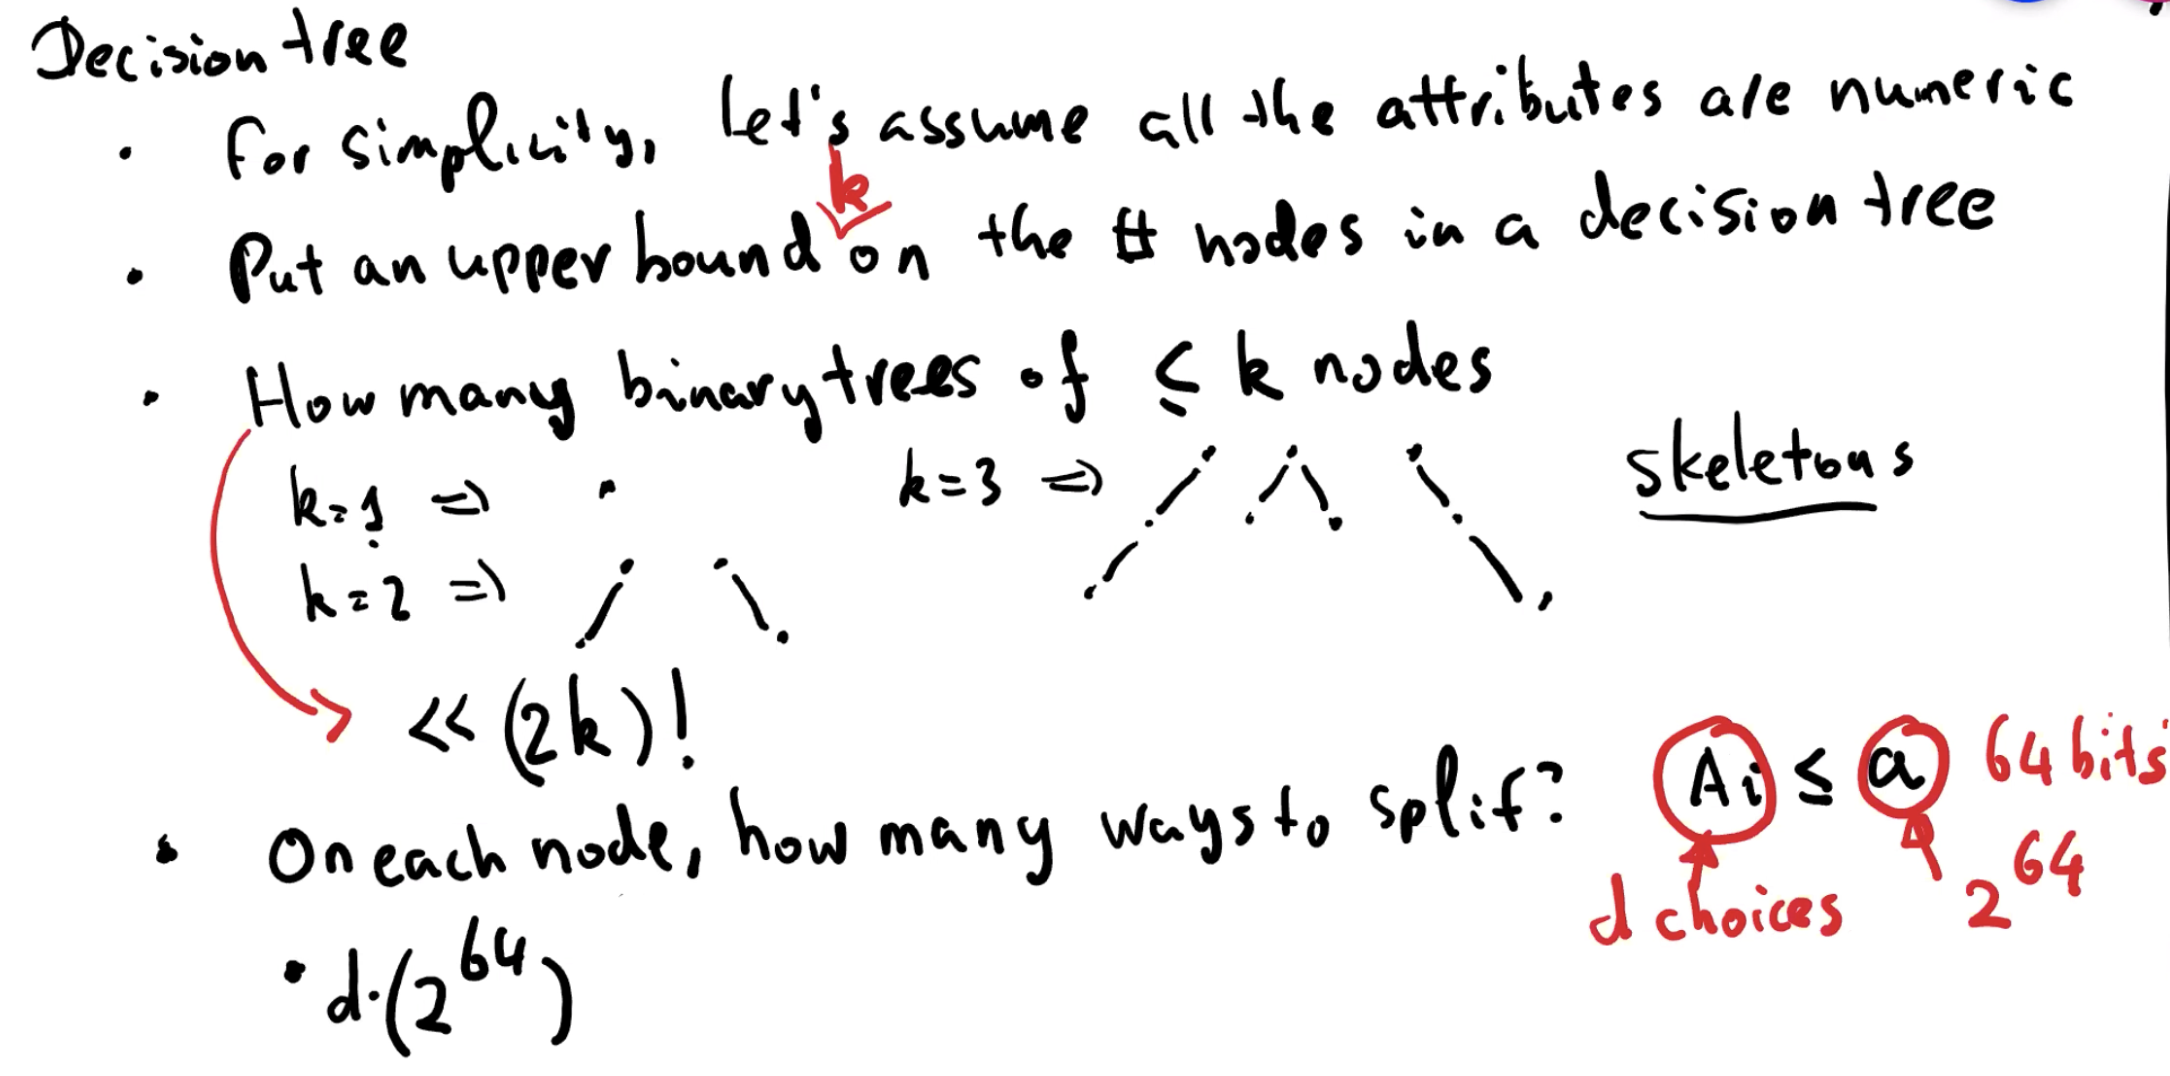 Decision tree
• For simplicity, Let's assume all the attributes are numeric
k
• Put an upper bound on the # nodes in a decision tree
• How many binary trees of ≤ k nodes
k=1 ⇒
k=3 ⇒
skeletons
k=2 ⇒
<< (2k)!
• On each node, how many ways to split? Ai ≤ a 64 bits
d choices
2^64
• d·(2^64)